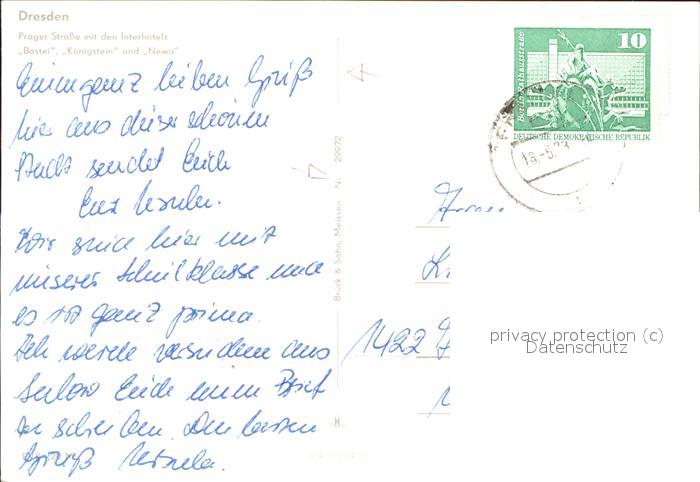 Dresden
Prager Straße mit den Interhotels
„Bastei", „Königstein" und „Newa"
Einen ganz lieben Gruß
hier aus dieser schönen
Stadt sendet Euch
Eure Ursula.
Wir sind hier mit
unserer Schulklasse und
es ist ganz prima.
Ich werde versuchen aus
Euch einen Brief
zu schreiben. Den besten
Gruß Ursula.
Bruck & Sohn, Meissen Nr. 29972
Berlin, Rathausstraße
10
DEUTSCHE DEMOKRATISCHE REPUBLIK
1422
privacy protection (c)
Datenschutz